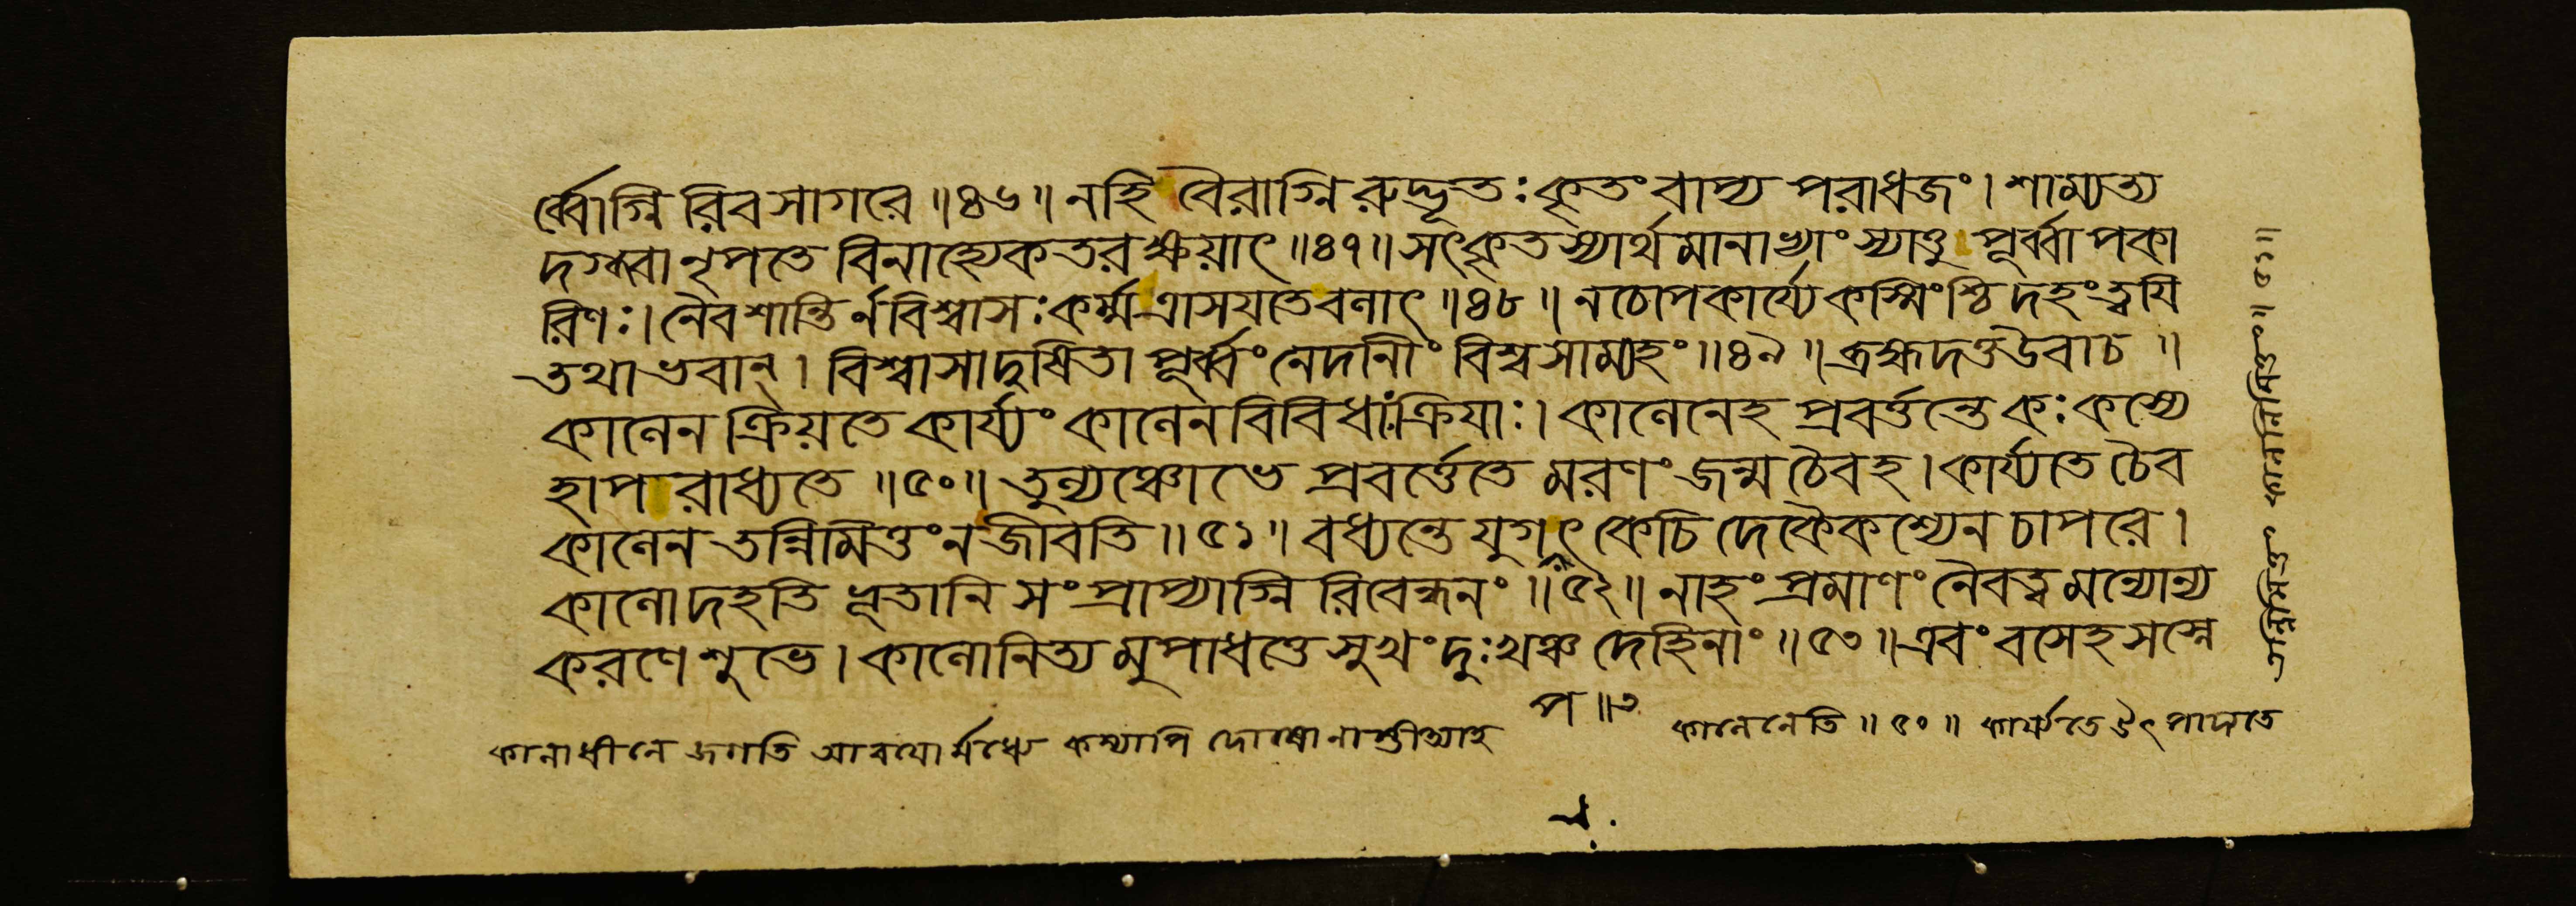 র্ব্বোগ্নি রিবসাগরে ॥৪৬॥ নহি বৈরাগ্নি রুদ্ভূতঃ কৃতং বাপ্য পরাধজং। শাম্যত্য
দগ্ধ্বা নৃপতে বিনাহ্যেকতরক্ষয়াৎ ॥৪৭॥ সৎকৃতস্যার্থমানাভ্যাং স্যাত্তু পূর্ব্বাপকা
রিণঃ। নৈবশান্তি র্নবিশ্বাসঃ কর্ম্মত্রাসয়তেবলাৎ ॥৪৮॥ নচোপকার্য্যে কস্মিংশ্চিদহংত্বয়ি
তথাভবান্। বিশ্বাসাদুষিতা পূর্ব্বং নেদানীং বিশ্বসাম্যহং ॥৪৯॥ ব্রহ্মদত্তউবাচ ॥
কালেন ক্রিয়তে কার্য্যং কালেনবিবিধাঃক্রিয়াঃ। কালেনেহ প্রবর্ত্তন্তে কঃ কস্যে
হাপরাধ্যতে ॥৫০॥ তুল্যঞ্চোভে প্রবর্ত্তেতে মরণং জন্মচৈবহ। কার্য্যতে চৈব
কালেন তন্নিমিত্তং নজীবতি ॥৫১॥ বধ্যন্তে যুগপৎ কেচিদেকৈকশ্যেন চাপরে।
কালোদহতি ভূতানি সংপ্রাপ্যাগ্নি রিবেন্ধনং ॥৫২॥ নাহং প্রমাণং নৈবত্বমন্যোন্য
করণে শুভে। কালোনিত্যমুপাধত্তে সুখংদুঃখঞ্চ দেহিনাং ॥৫৩॥ এবং বসেহ সস্নে
প ॥৩
কালেনেতি ॥৫০॥ কার্য্যতে উৎপাদ্যতে
তন্নিমিত্তং কালনিমিত্তং॥ ৫১॥
কালাধীনে জগতি আবয়োর্মধ্যে কস্যাপি দোষোনাস্তীত্যাহ